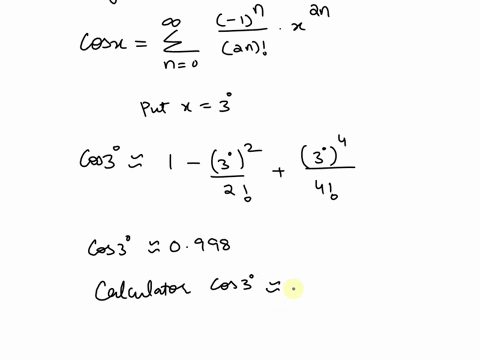 Cosx = ∞ ∑ n=0 (-1)^n / (2n)! · x^2n
Put x = 3°
Cos3° ≈ 1 - (3°)^2 / 2! + (3°)^4 / 4!
Cos3° ≈ 0.998
Calculator Cos3° ≈ .